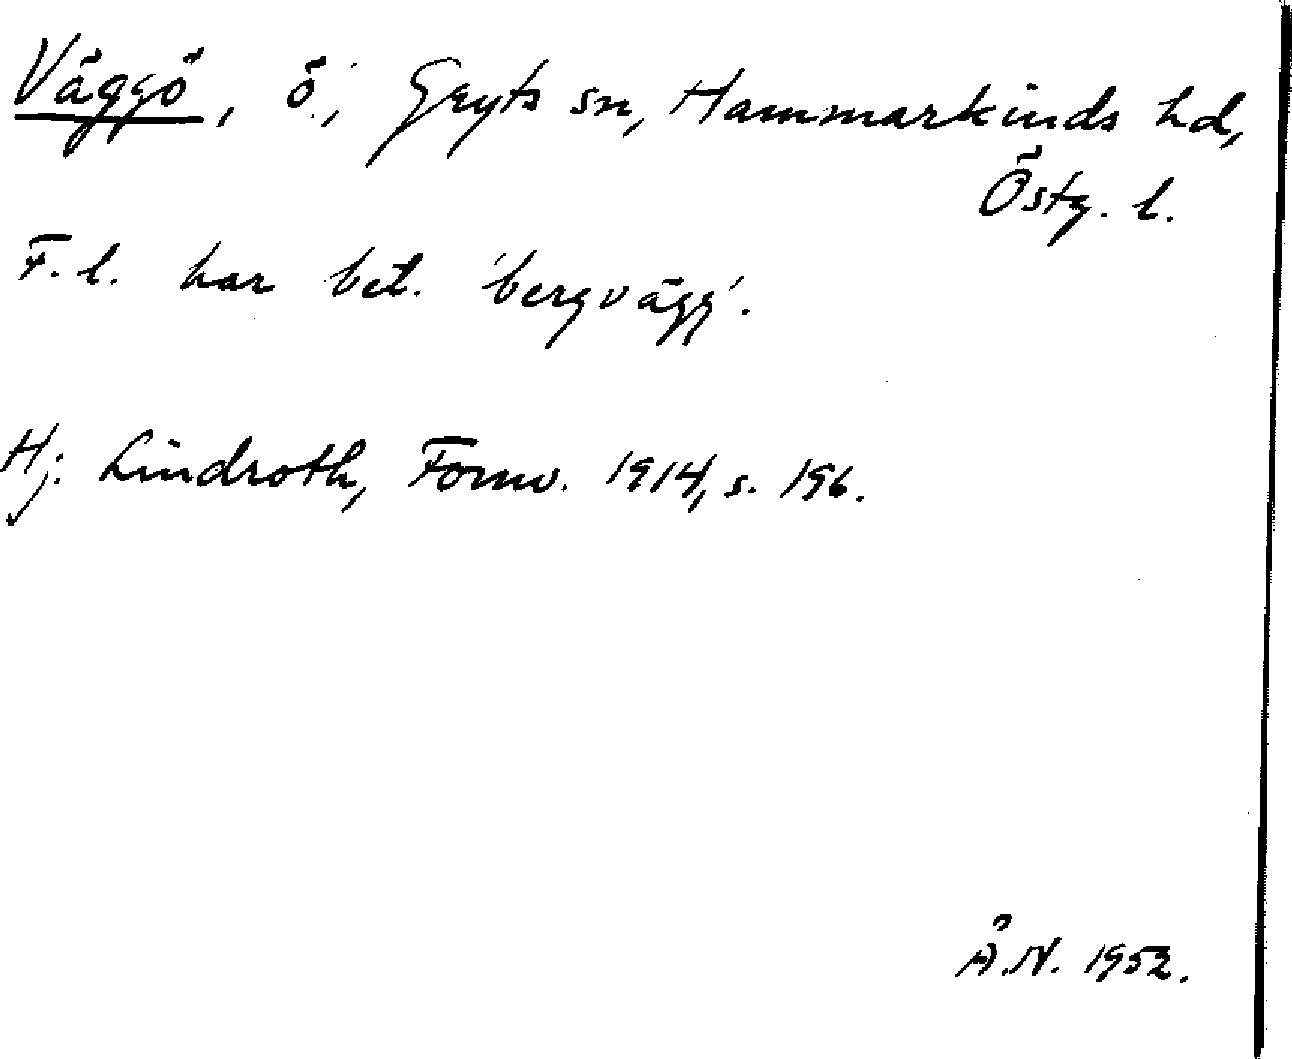 Väggö, ö, Gryts sn, Hammarkinds hd,
Östg. l.
F.l. har bet. 'bergvägg'.
Hj. Lindroth, Fornv. 1914, s. 196.
Å.N. 1952.